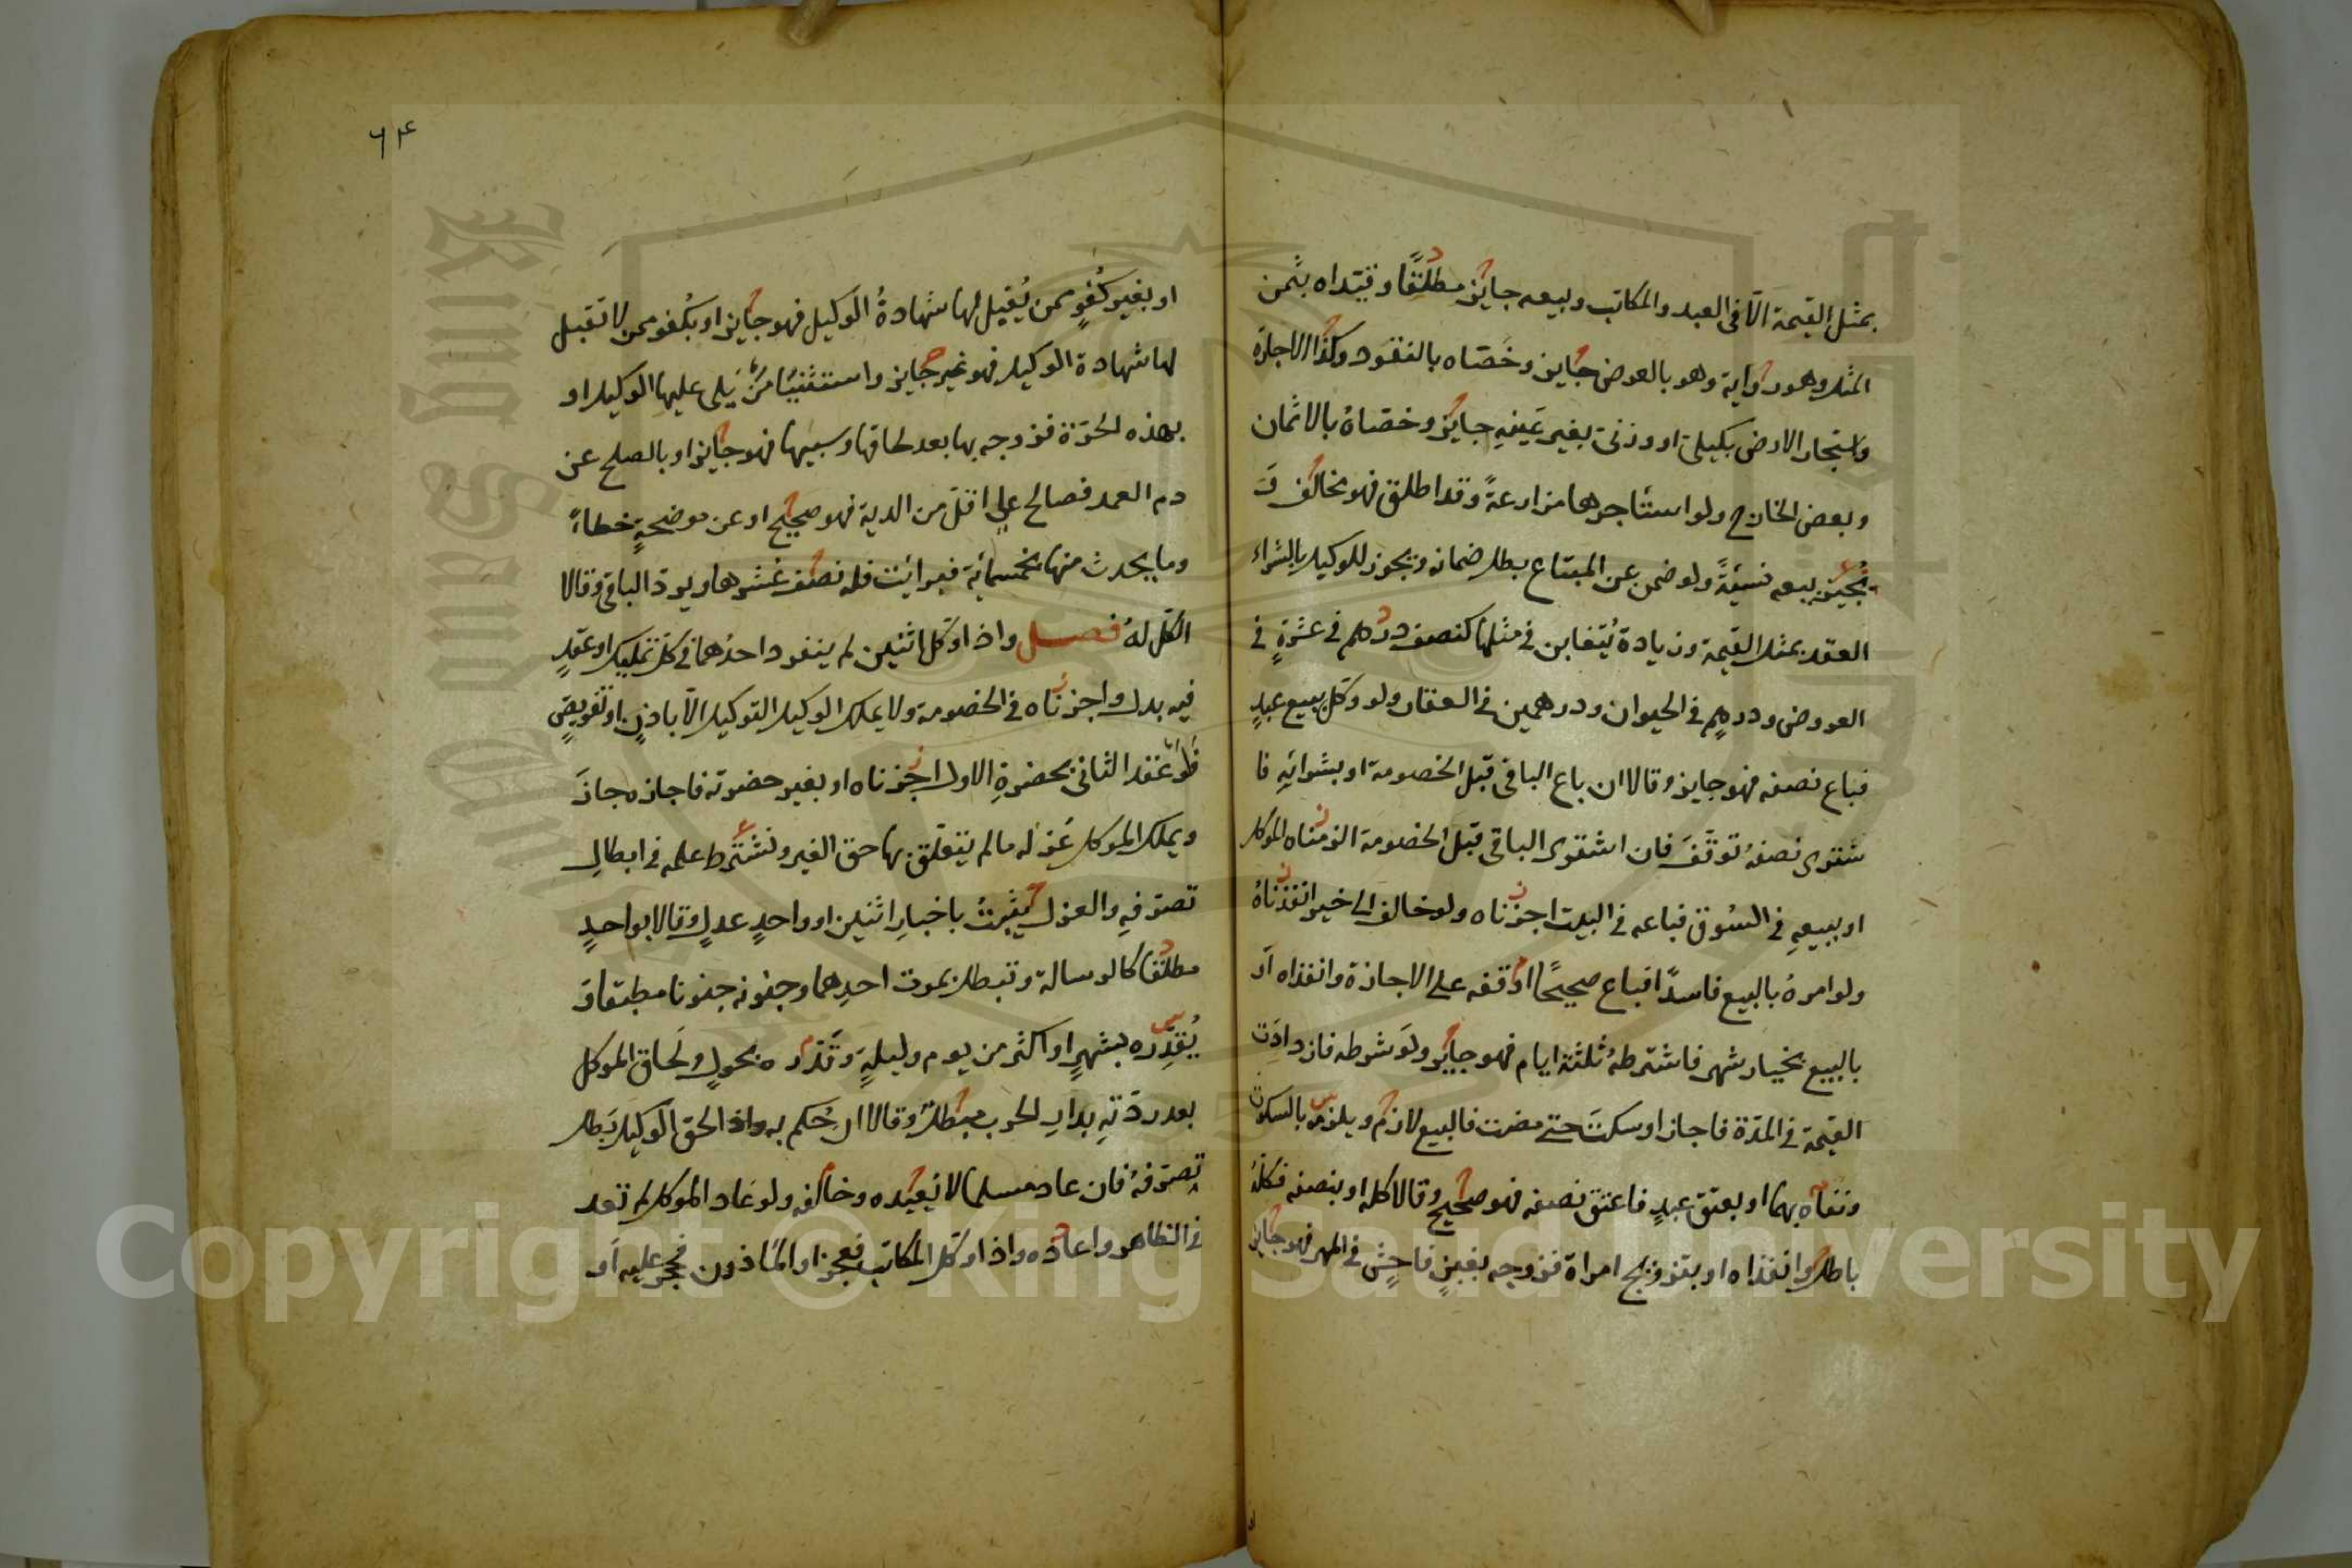 بمثل القيمة الّا فى العبد والمكاتب وبيعه جايز مطلقًا وقيّداه بثمن
المثل وهو رواية وهو بالعوض جاين وخصّاه بالنقود وكذا الاجارة
واستيجار الارض بكيلى او وزنى بغير عينه جايز وخصّاهُ بالاثمان
وبعض الخارج ولو استأجرها مزارعةً وقد اطلق فهو مخالف وَ
يُجيز بيعه نسيئةً ولو ضمن عن المبتاع بطل ضمانه ويجوز للوكيل بالشراء
العقد بمثل القيمة وزيادة يُتغابن فى مثلها كنصف درهم فى عشرةٍ فى
العروض ودرهمٍ فى الحيوان ودرهمين فى العقار ولو وكّل ببيع عبدٍ
فباع نصفه فهو جايز وقالا ان باع الباقى قبل الخصومة او بشرائهِ فا
شترى نصفهُ توقّفَ فان اشترى الباقى قبل الخصومة الزمناه الموكل
او ببيعهِ فى السُوق فباعه فى البيت اجزناه ولو خالف الى خير انفذناهُ
ولو امرهُ بالبيع فاسدًا فباع صحيحًا اوقفه على الاجازة وانفذاه اَو
بالبيع بخيار شهر فاشترطهُ ثلثة ايام فهو جايز ولَو شرطه فازدادَت
القيمة فى المدّة فاجاز او سكتَ حتى مضت فالبيع لازم ويلزمه بالسكوت
ونفاه بهما او بعتق عبدٍ فاعتق نصفه فهو صحيح وقالا كله او بنصفه فكلهُ
باطل وانفذاه او بتزويج امراة فزوجه بغبنٍ فاحشٍ فى المهر فهو جايز
٦٤
او بغير كُفوٍ ممن يُقبل لها شهادةُ الوكيل فهو جايز او بكُفو ممن لا تقبل
لها شهادة الوكيل فهو غير جايز واستثنيا مَن يَلى عليها الوكيل او
بهذه الحرّة فزوجه بها بعد لحاقها وسبيها فهو جايز او بالصلح عن
دم العمد فصالح على اقلّ من الدية فهو صحيح او عن موضحةٍ خطاءً
وما يحدث منها بخمسمائة فبرائت فله نصف عُشرها ويردّ الباقى وقالا
الكل لهُ فصل واذا وكّل اثنين لم ينفرد احدُهما فى كل تمليك او عقدٍ
فيه بدل واجزناه فى الخصومة ولا يملك الوكيل التوكيل الّا باذنٍ او تفويضٍ
فلَو عَقد الثانى بحضرةِ الاول اجزناه او بغير حضرته فاجازه جازَ
ويملك الموكل عَزلَه ما لم يتعلّق بها حق الغير ونشترط علمه فى ابطالِ
تصرّفهِ والعزل يثبتُ باخبارِ اثنين او واحدٍ عدلٍ وقالا بواحدٍ
مطلقًا كالرسالة وتبطل بموت احدِهما وجنونه جنونا مطبقا وَ
يُقدّره بشهرٍ او اكثر من يوم وليلةٍ وقدّره بحولٍ ولَحاق الموكل
بعد ردّتهِ بدارِ الحرب مبطلٌ وقالا ان حُكم به واذا لحق الوكيل بَطل
تصرّفهُ فان عاد مسلما لا نُعيده وخالفه ولو عَاد الموكل لم تعد
فى الظاهر واعاده واذا وكل المكاتب فعجز او الماذون فحجر عليه اَو